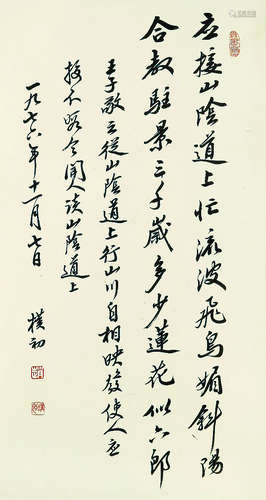 应接山陰道上忙流波飛鳥媚斜陽
合教駐景三千歲多少蓮花似六郎
王子敬云從山陰道上行山川自相映發使人应
接不暇今聞人谈山陰道上
一九七六年十一月七日
樸初